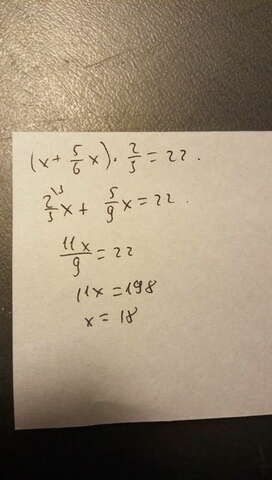 (x + 5/6 x) · 2/3 = 22.
2/3 \3 x + 5/9 x = 22.
11x/9 = 22
11x = 198
x = 18